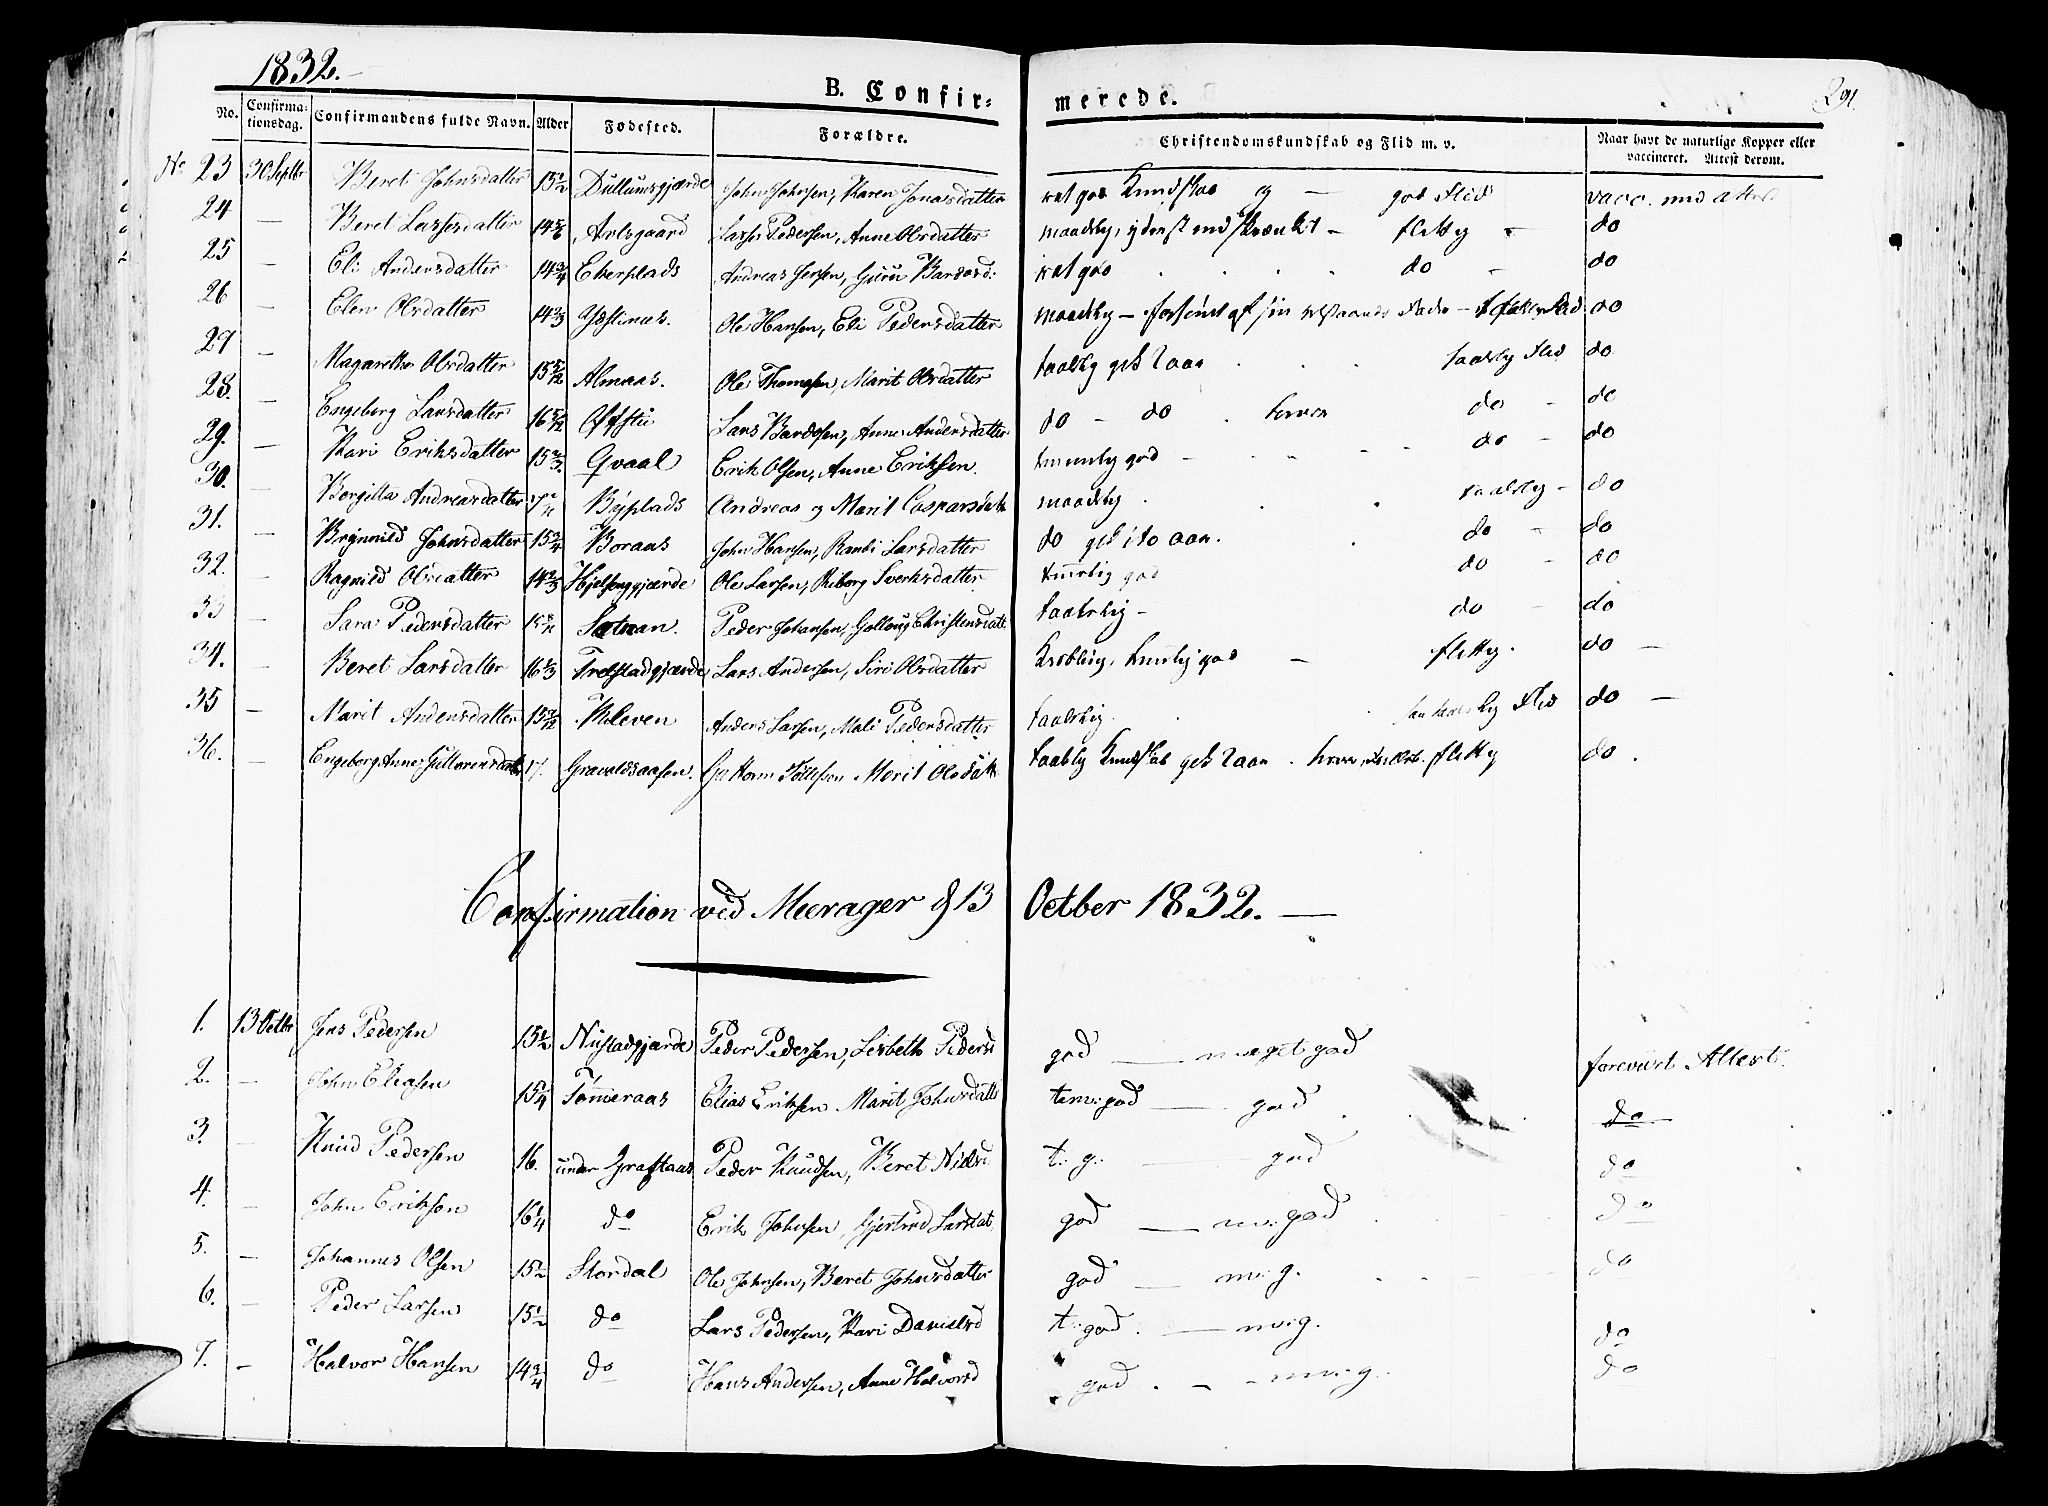 1832.
B. Confirmerede.
291
No. Confirmationsdag. Confirmandens fulde Navn. Alder Fødested. Forældre. Christendomskundskab og Flid m. v. Naar havt de naturlige Kopper eller vaccineret. Attest derom.
No 23 30 Septbr Beret Johnsdatter 15 1/2 Dullumsgjærde John Johnsen, Karen Jonasdatter ret god Kundskab og — god Flid vacc. med attest
24 — Beret Larsdatter 14 5/6 Arlsgaard Lars Pedersen, Anne Olsdatter maadelig, — flittig - do
25 — Eli Andersdatter 14 3/4 Eberplads Andreas Jensen, Guru Bardosd: ret god do - do
26 — Elen Olsdatter 14 2/3 Ystines. Ole Hansen, Eli Pedersdatter maadelig — do
27 — Magarethe Olsdatter 15 5/12 Almaas. Ole Thomesen, Marit Olsdatter taalelig gik 2 aar taalelig Flid do
28. — Engeborg Larsdatter 16 5/12 Øfsti Lars Bardosen, Anne Andersdatter do — do do - do
29. — Kari Eriksdatter 15 2/3. Qvaal Erik Olsen, Anne Eriksen. temmelig god - do - do
30. — Bergitta Andreasdatter 17 Byplads Andreas og Marit Casparsdatt maadelig taalelig - do
31. — Brynnild Johnsdatter 15 3/4 Boraas John Hansen, Randi Larsdatter do gik i to aar. do - do
32. — Ragnild Olsdatter 14 2/3 Hjelsenggjærde Ole Larsen, Riborg Sverksdatter temelig god do - do
33 — Sara Pedersdatter 15 Sotnan. Peder Johansen, Gollaug Christensdatt taalelig - do - do
34. — Beret Larsdatter 16 1/3 Trelstadgjærde Lars Andersen, Siri Olsdatter temelig god — flittig. do —
35 — Marit Andersdatter 15 Kleven Anders Larsen, Mali Pedersdatter taalelig Flid do —
36. — Engeborg Anne Guttormsdatter 17. Gravaldsaasen. Guttorm Tollefsen Marit Olsdatt taalelig Kundskab gik 2 aar. flittig do.
Confirmation ved Meerager d 13 Octber 1832. —
1. 13 Octbr Jens Pedersen 15 1/2 Nustadgjærde Peder Pedersen, Lisbeth Pedersd god — meget god forevist Attest.
2. — John Eliasen 15 1/4 Tømeraas Elias Eriksen Marit Johnsdatt tem: god — god do
3. — Knud Pedersen 16. under Graftaas Peder Knudsen, Beret Nielsd t: g: — god do
4. — John Eriksen 16 1/4 do Erik Johnsen, Gjertrud Larsdat god — m: god do
5. — Johannes Olsen 15 1/2 Stordal Ole Johnsen, Beret Johnsdatter god — m: g. do
6. — Peder Larsen 15 1/2 do Lars Pedersen, Kari Danielsd t: god. — m: g. do
7. — Halvor Hansen 14 3/4 do Hans Andersen, Anne Halvorsd god. — m: g. do